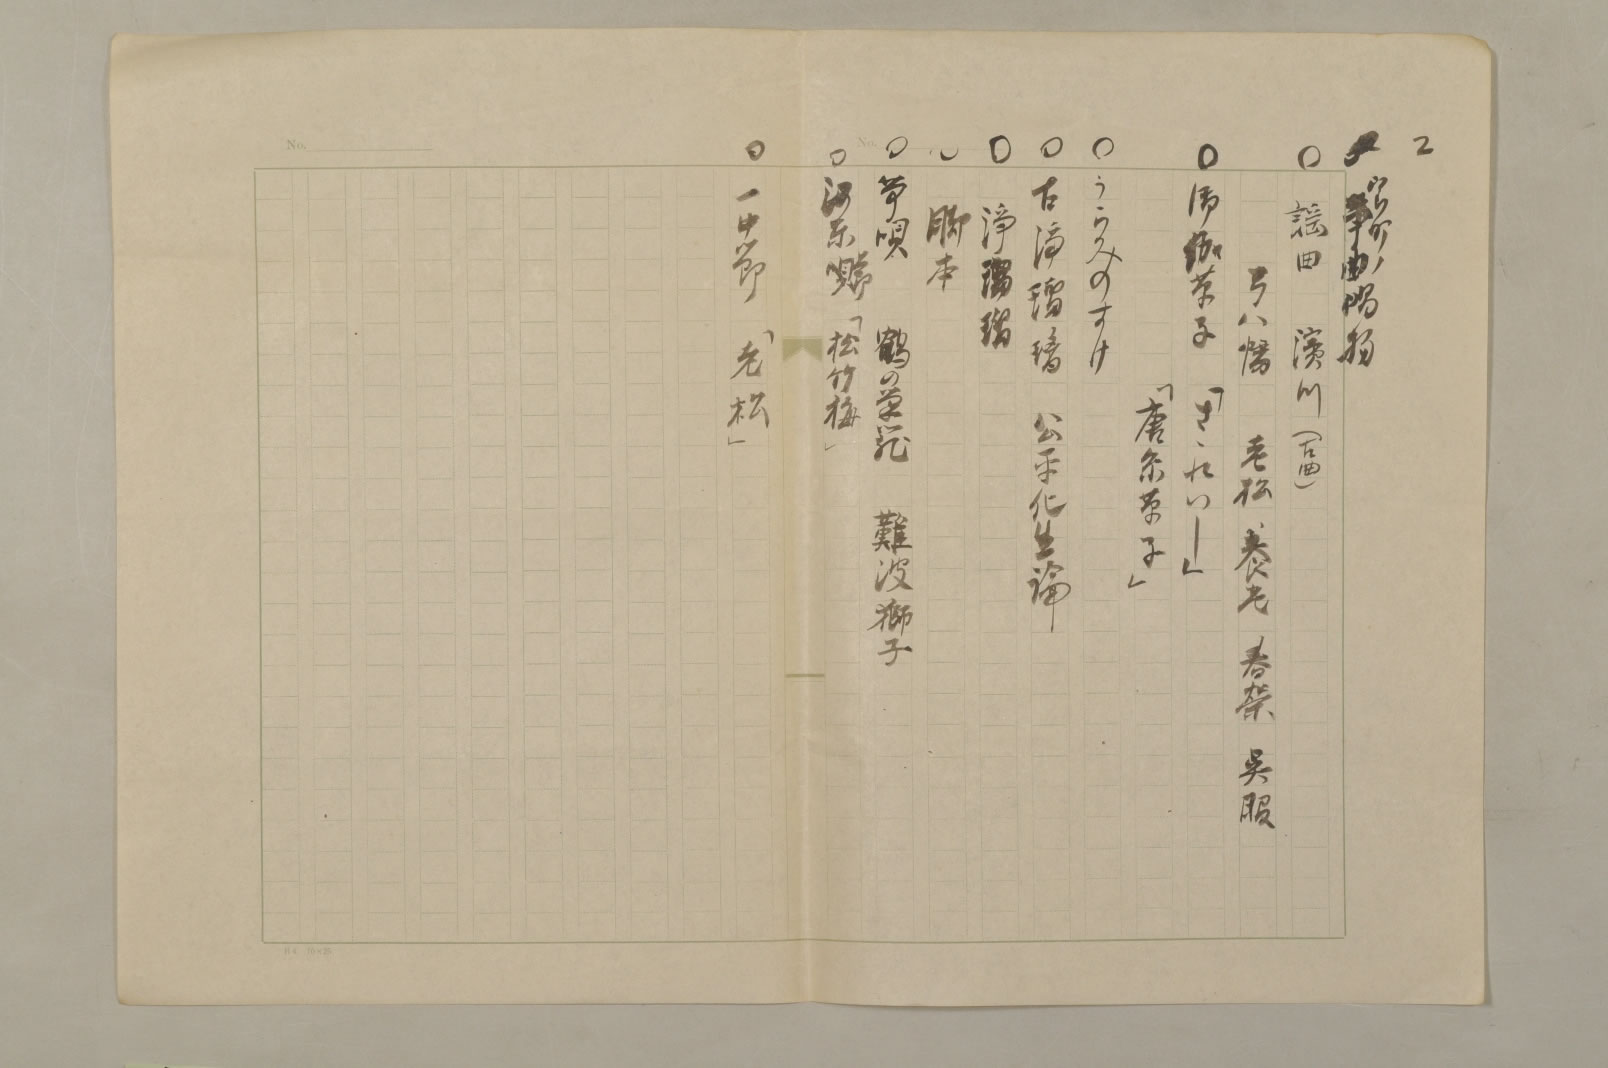 2
謡曲 濱川(古曲)
弓八幡 老松 養老 春榮 呉服
○ 御伽草子 「さゝれいし」
「唐糸草子」
○ うらみのすけ
○ 古浄瑠璃 公平化生論
○ 浄瑠璃
○ 脚本
○ 箏唄 鶴の巣籠 難波獅子
○ 河東節 「松竹梅」
○ 一中節 「老松」
No.
No.
10×25